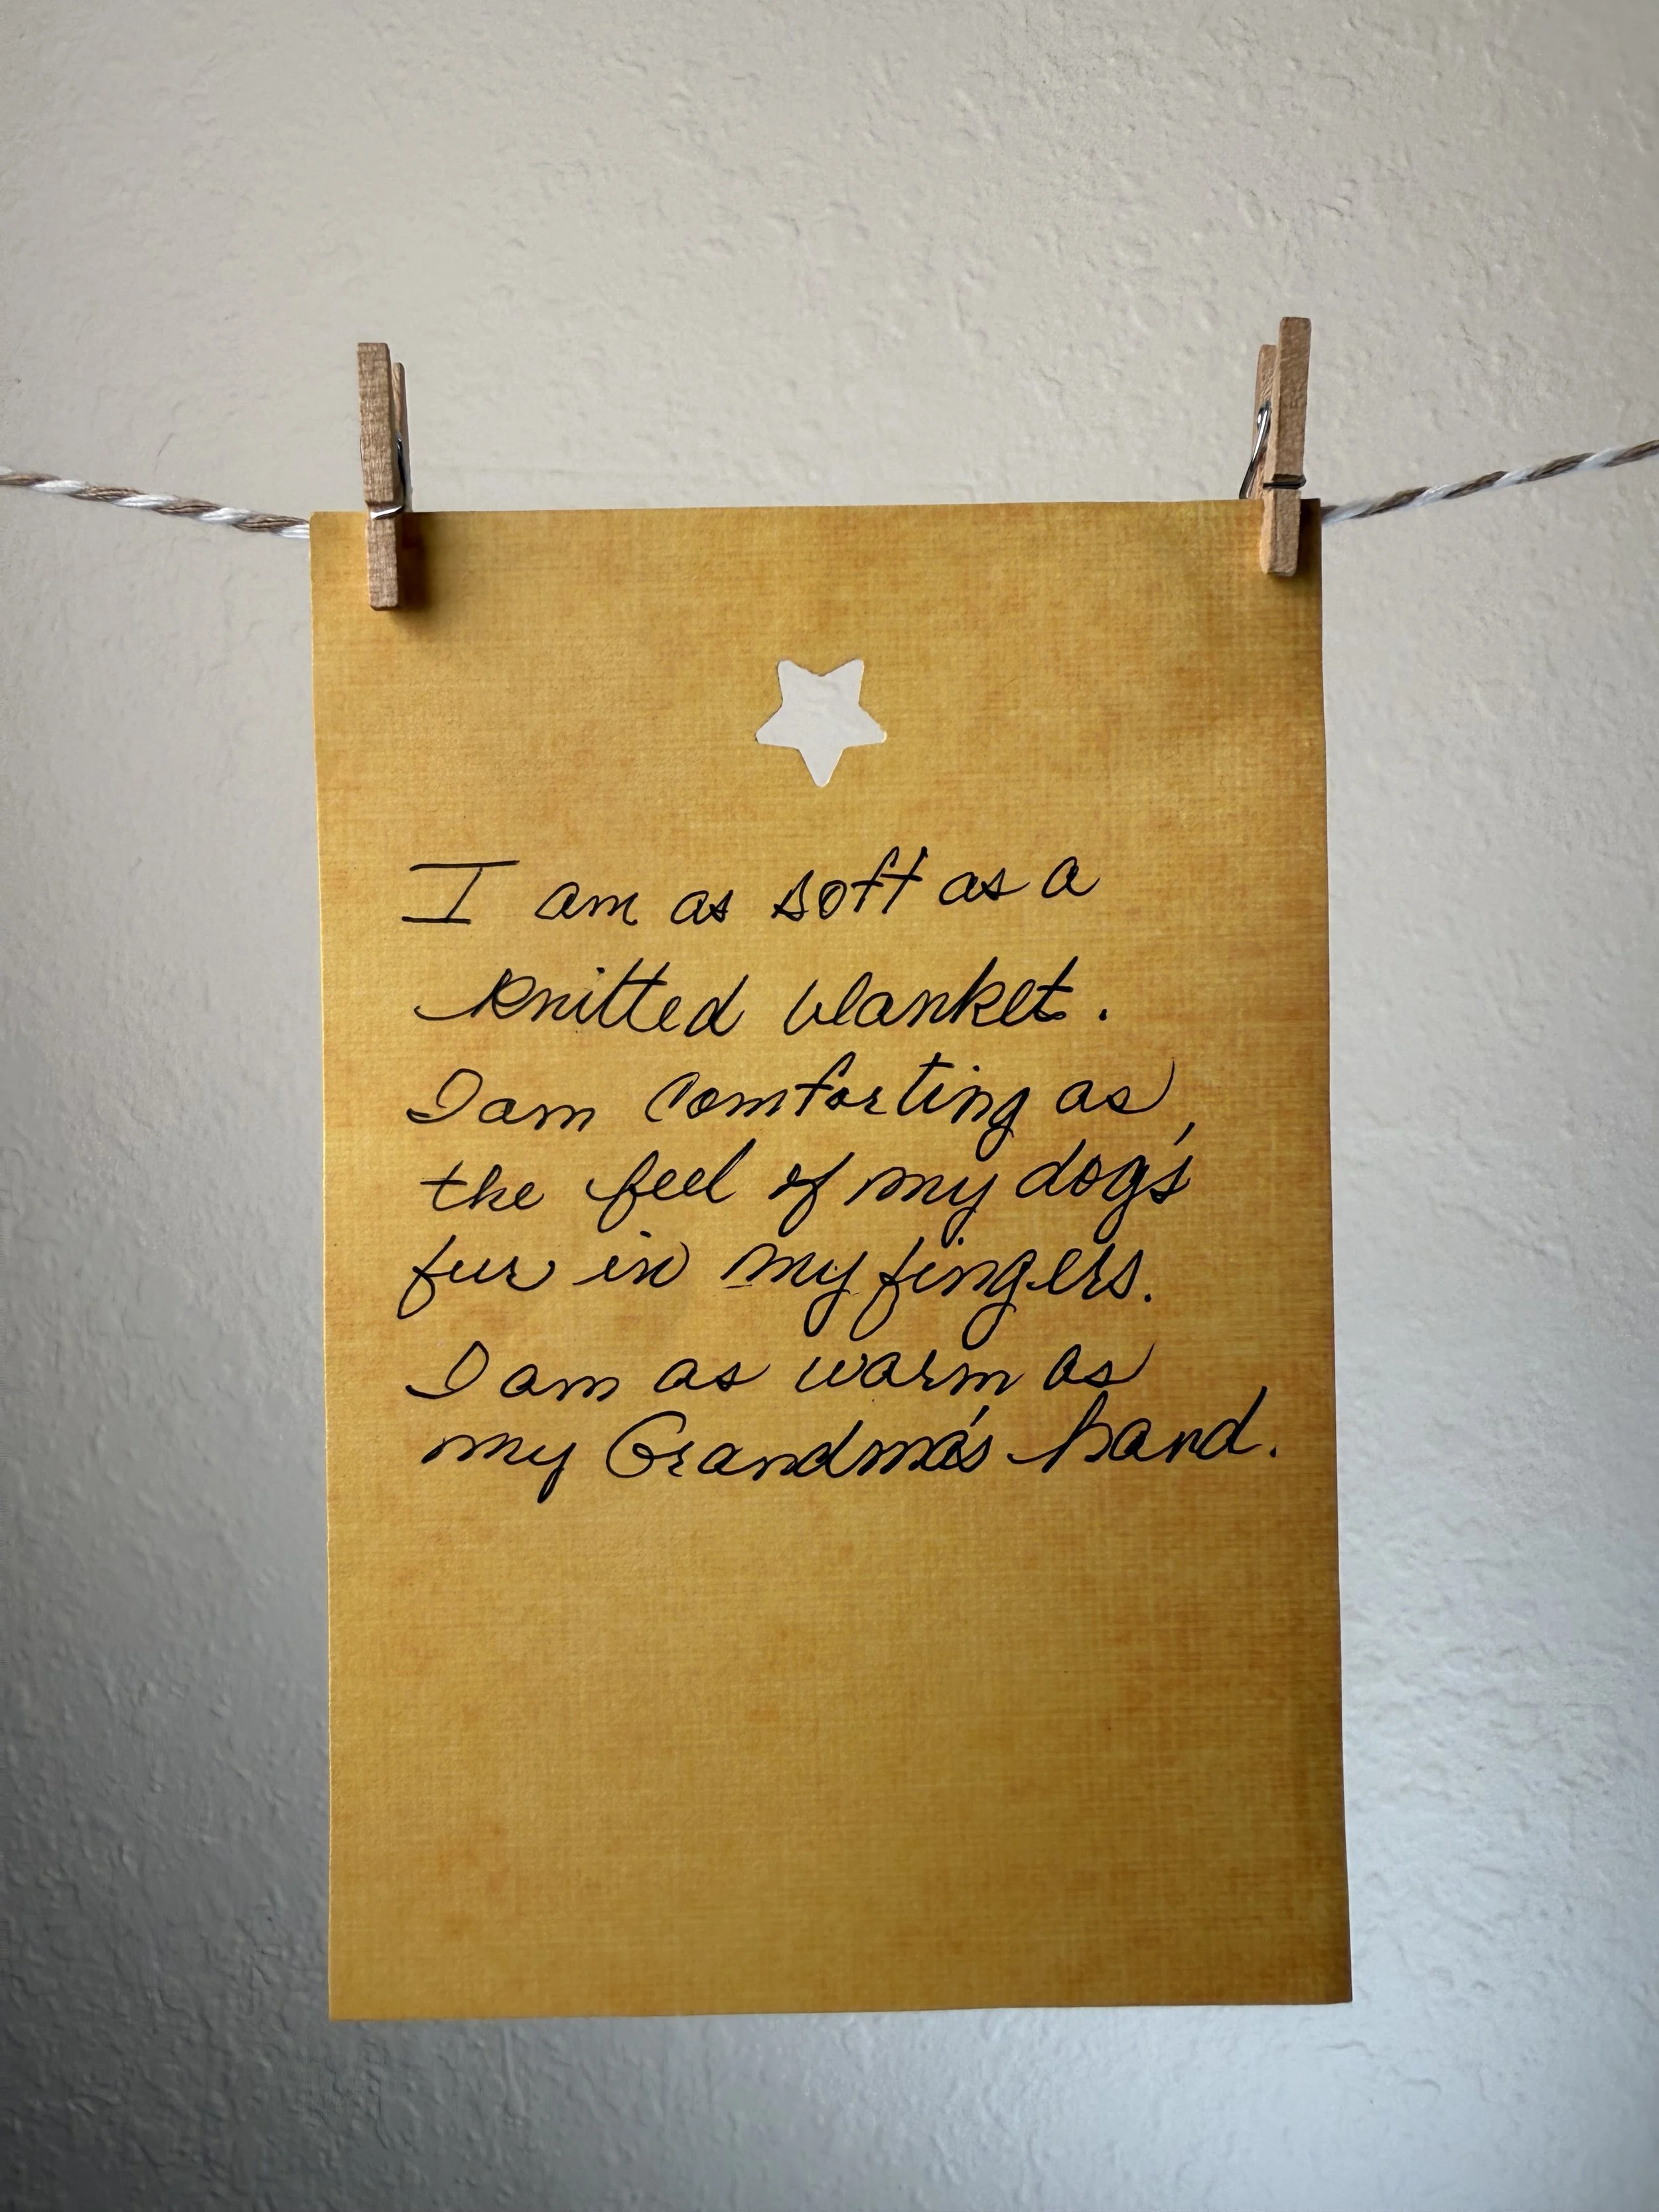 I am as soft as a
knitted blanket.
I am comforting as
the feel of my dog's
fur in my fingers.
I am as warm as
my Grandma's hand.